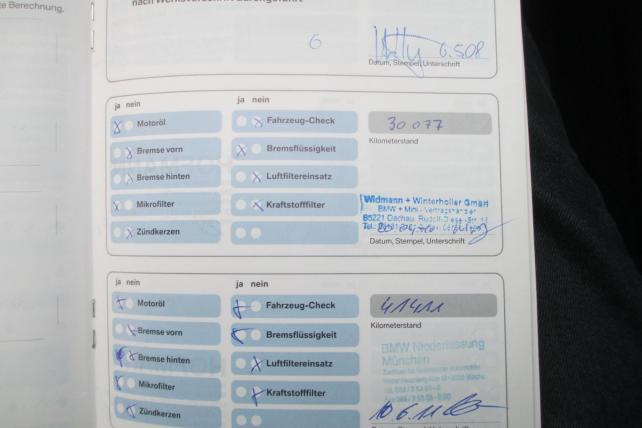 te Berechnung,
nach Werksvorschrift durchgeführt
6
6.5.08
Datum, Stempel, Unterschrift
ja nein
ja nein
Motoröl
Fahrzeug-Check
30 077
Kilometerstand
Bremse vorn
Bremsflüssigkeit
Bremse hinten
Luftfiltereinsatz
Mikrofilter
Kraftstofffilter
Widmann + Winterholler GmbH
BMW + Mini - Vertragshändler
85221 Dachau,
Zündkerzen
Datum, Stempel, Unterschrift
ja nein
ja nein
Motoröl
Fahrzeug-Check
41411
Kilometerstand
Bremse vorn
Bremsflüssigkeit
BMW Niederlassung
München
Bremse hinten
Luftfiltereinsatz
Mikrofilter
Kraftstofffilter
10.6.11
Zündkerzen